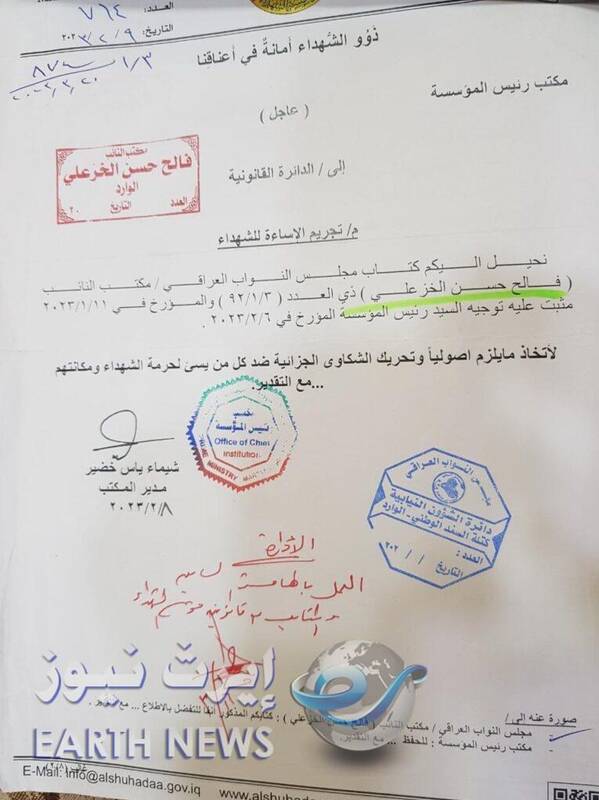 العدد: ٧٦٤
التاريخ: ٢٠٢٣/٢/٩
ذوُو الشُّهداء أمانةٌ في أعناقنا
مكتب رئيس المؤسسة
( عاجل )
مكتب النائب
فالح حسن الخزعلي
الوارد
العدد التاريخ ٢٠
إلى / الدائرة القانونية
م/ تجريم الإساءة للشهداء
نحيل اليكم كتاب مجلس النواب العراقي / مكتب النائب
( فالح حسن الخزعلي ) ذي العدد ( ٩٢/١/٣ ) والمؤرخ في ٢٠٢٣/١/١١
مثبت عليه توجيه السيد رئيس المؤسسة المؤرخ في ٢٠٢٣/٢/٦ .
لأتخاذ مايلزم اصولياً وتحريك الشكاوى الجزائية ضد كل من يسئ لحرمة الشهداء ومكانتهم
...مع التقدير.
رئيس المؤسسة
Office of Chief
Institution
شيماء ياس خضير
مدير المكتب
٢٠٢٣/٢/٨
مجلس النواب العراقي
دائرة الشؤون النيابية
كتلة السند الوطني - الوارد
العدد:
التاريخ / / ٢٠٢
الأدارة
إيرث نيوز
EARTH NEWS
صورة عنه إلى /
مجلس النواب العراقي / مكتب النائب ( فالح حسن الخزعلي ) : كتابكم المذكور آنفا للتفضل بالاطلاع ... مع التقدير .
مكتب رئيس المؤسسة : للحفظ ... مع التقدير.
E-Mail: info@alshuhadaa.gov.iq
www.alshuhadaa.gov.iq